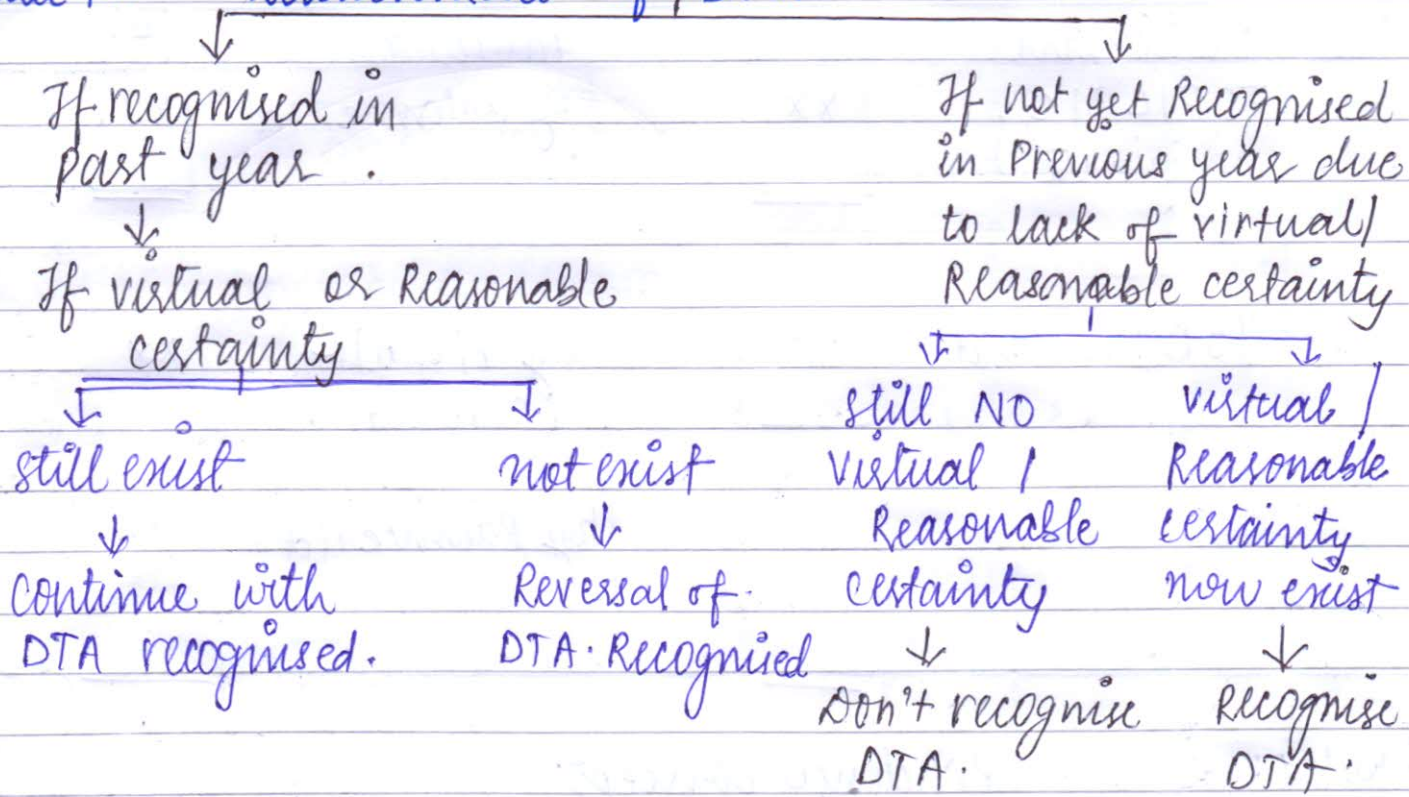 If recognised in
past year.
If virtual or Reasonable
certainty
still exist
continue with
DTA recognised.
not exist
Reversal of
DTA. Recognised
If not yet Recognised
in Previous year due
to lack of virtual/
Reasonable certainty
still NO
Virtual /
Reasonable
certainty
Don't recognise
DTA.
Virtual /
Reasonable
certainty
now exist
Recognise
DTA.